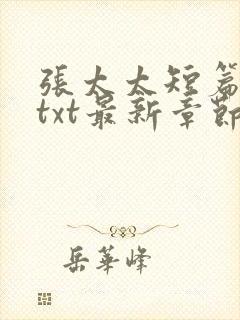 張太太短篇
txt最新章節
岳華峰